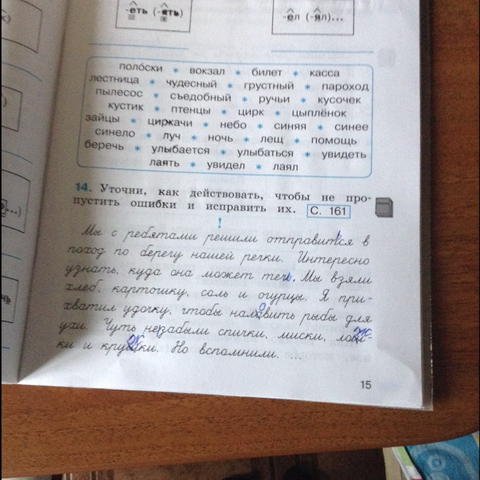 -еть (-ять)
-ел (-ял)...
полоски * вокзал * билет * касса
лестница * чудесный * грустный * пароход
пылесос * съедобный * ручьи * кусочек
кустик * птенцы * цирк * цыплёнок
зайцы * циркачи * небо * синяя * синее
синело * луч * ночь * лещ * помощь
беречь * улыбается * улыбаться * увидеть
лаять * увидел * лаял
14. Уточни, как действовать, чтобы не про-
пустить ошибки и исправить их. С. 161
!
Мы с ребятами решили отправится в
поход по берегу нашей речки. Интересно
узнать, куда она может течь. Мы взяли
хлеб, картошку, соль и огурцы. Я при-
хватил удочку, чтобы наловить рыбы для
ухи. Чуть незабыли спички, миски, лож-
ки и кружки. Но вспомнили.
15